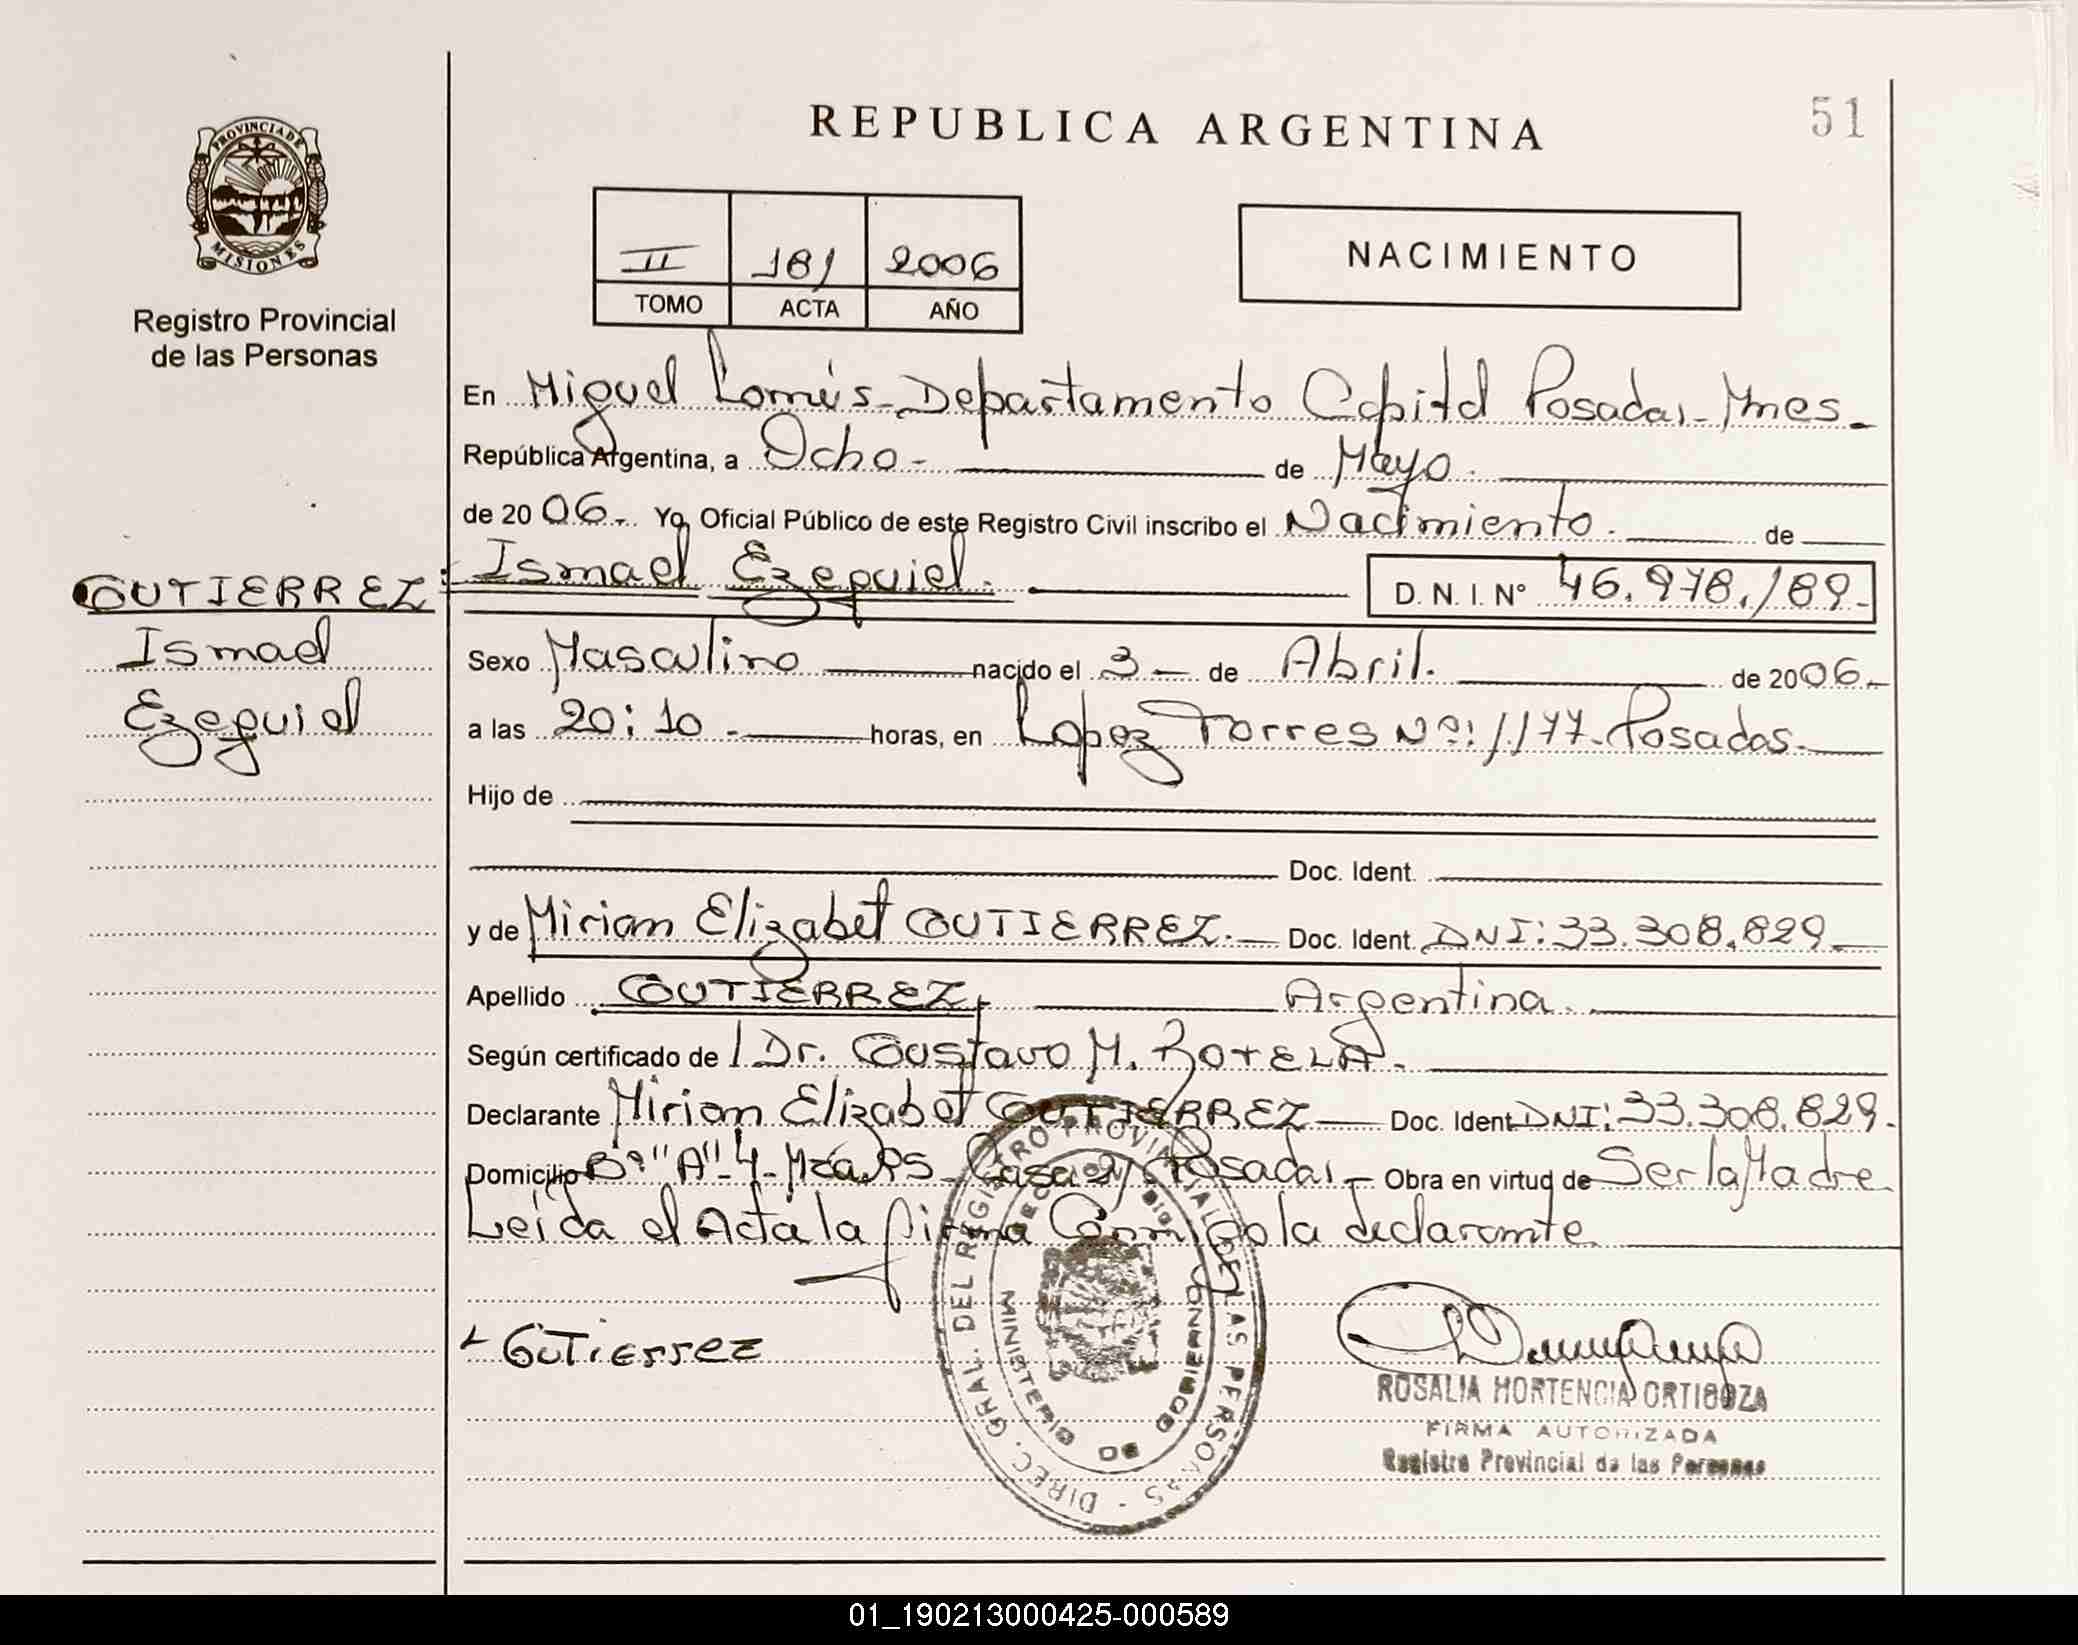 REPUBLICA ARGENTINA
51
PROVINCIA DE
MISIONES
Registro Provincial
de las Personas
II 181 2006
TOMO ACTA AÑO
NACIMIENTO
En Miguel Lanús - Departamento Capital Posadas - Mnes.
República Argentina, a Ocho - de Mayo.
de 2006. Yo, Oficial Público de este Registro Civil inscribo el Nacimiento. de
GUTIERREZ: Ismael Ezequiel. D. N. I. N° 46.978.189.-
Ismael
Ezequiel
Sexo Masculino nacido el 3 - de Abril. de 2006.-
a las 20:10 - horas, en Lopez Torres Nº: 1177 - Posadas.
Hijo de
Doc. Ident.
y de Mirian Elizabet GUTIERREZ. - Doc. Ident. DNI: 33.308.829
Apellido GUTIERREZ, Argentina.
Según certificado de / Dr. Gustavo M. ROTELA.
Declarante Mirian Elizabet GUTIERREZ - Doc. Ident. DNI: 33.308.829.
Domicilio Bº "A"-4- Mza Casa Posadas - Obra en virtud de Ser la Madre
Leída el Acta la firma Conmigo la declarante
Gutierrez
DIREC. GRAL. DEL REGISTRO PROVINCIAL DE LAS PERSONAS
MINISTERIO DE GOBIERNO
ROSALIA HORTENCIA ORTIGOZA
FIRMA AUTORIZADA
Registro Provincial de las Personas
01_190213000425-000589